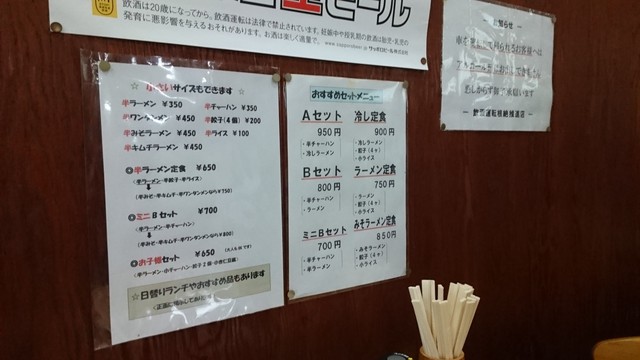 生ビール
飲酒は20歳になってから。飲酒運転は法律で禁止されています。妊娠中や授乳期の飲酒は胎児・乳児の
発育に悪影響を与えるおそれがあります。お酒は楽しく適量で。 サッポロビール株式会社
☆ 小さいサイズもできます ☆
半ラーメン ¥350
半チャーハン ¥350
半ワンタンメン ¥450
半餃子(4個) ¥200
半みそラーメン ¥450
半ライス ¥100
半キムチラーメン ¥450
◎半ラーメン定食 ¥650
(半ラーメン・半餃子・半ライス)
(半みそ・半キムチ・半ワンタンメンなら¥750)
◎ミニBセット ¥700
(半ラーメン・半チャーハン)
(半みそ・半キムチ・半ワンタンメンなら¥800)
◎お子様セット ¥650
☆ 日替りランチやおすすめ品もあります
おすすめセットメニュー
Aセット
950円
・半チャーハン
・冷しラーメン
冷し定食
900円
・冷しラーメン
・餃子(4ヶ)
・小ライス
Bセット
800円
・半チャーハン
・ラーメン
ラーメン定食
750円
・ラーメン
・餃子(4ヶ)
・小ライス
ミニBセット
700円
・半チャーハン
・半ラーメン
みそラーメン定食
850円
・みそラーメン
・餃子(4ヶ)
・小ライス
― お知らせ ―
お客様へは
アルコール
― 飲酒運転根絶推進店 ―